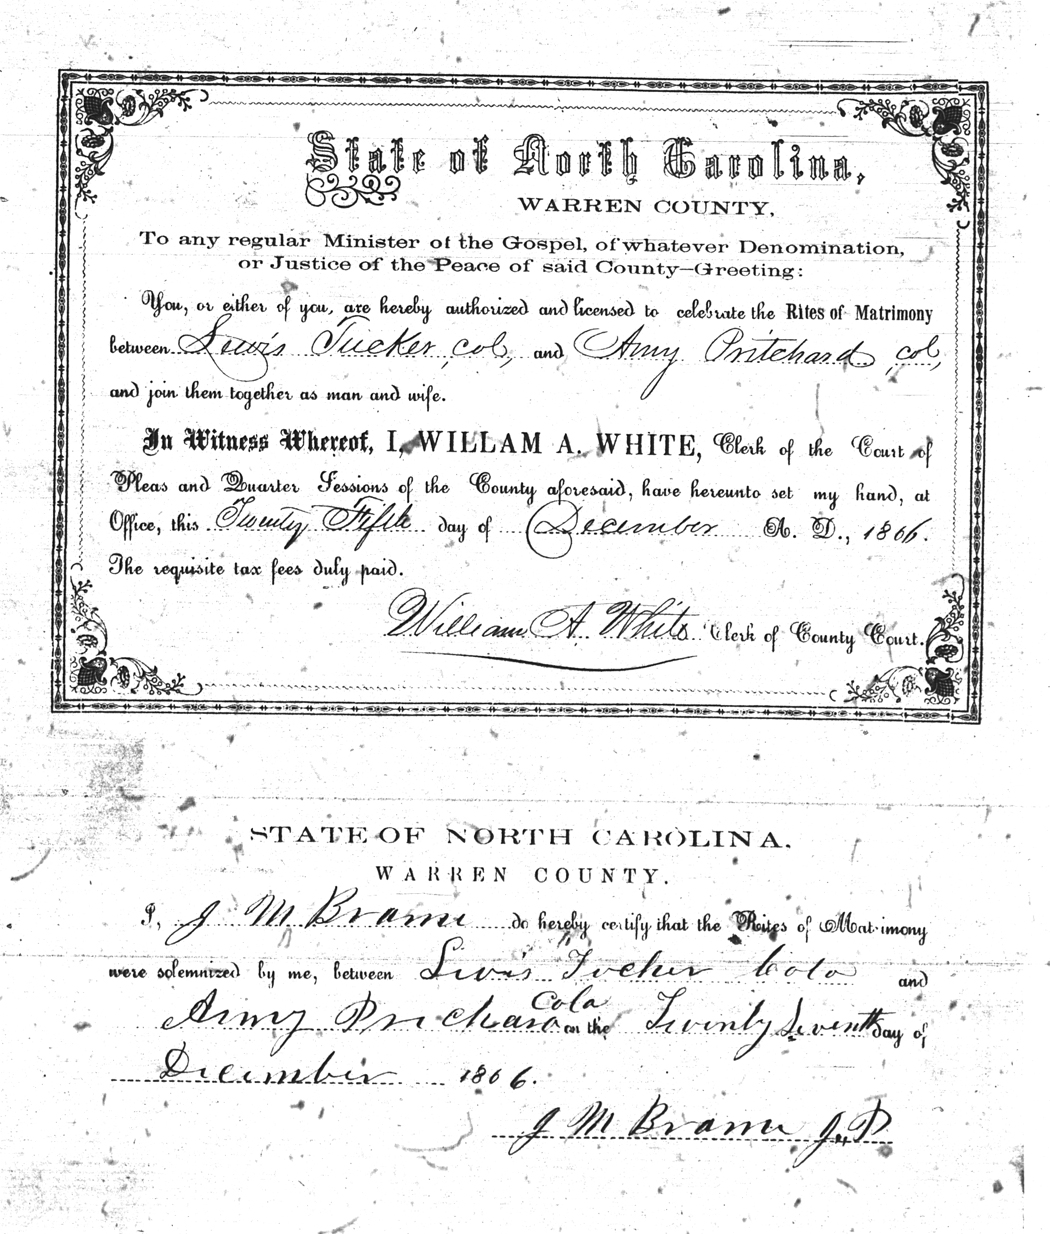 State of North Carolina,
WARREN COUNTY,
To any regular Minister of the Gospel, of whatever Denomination,
or Justice of the Peace of said County—Greeting:
You, or either of you, are hereby authorized and licensed to celebrate the Rites of Matrimony
between Lewis Tucker, col, and Amy Pritchard, col,
and join them together as man and wife.
In Witness Whereof, I, WILLAM A. WHITE, Clerk of the Court of
Pleas and Quarter Sessions of the County aforesaid, have hereunto set my hand, at
Office, this Twenty Fifth day of December A. D., 1866.
The requisite tax fees duly paid.
William A. White Clerk of County Court.
STATE OF NORTH CAROLINA.
WARREN COUNTY.
I, J M Brame do hereby certify that the Rites of Matrimony
were solemnized by me, between Lewis Tucker Cola and
Cola
Amy Prichard on the Twenty Seventh day of
December 1866.
J M Brame J. P